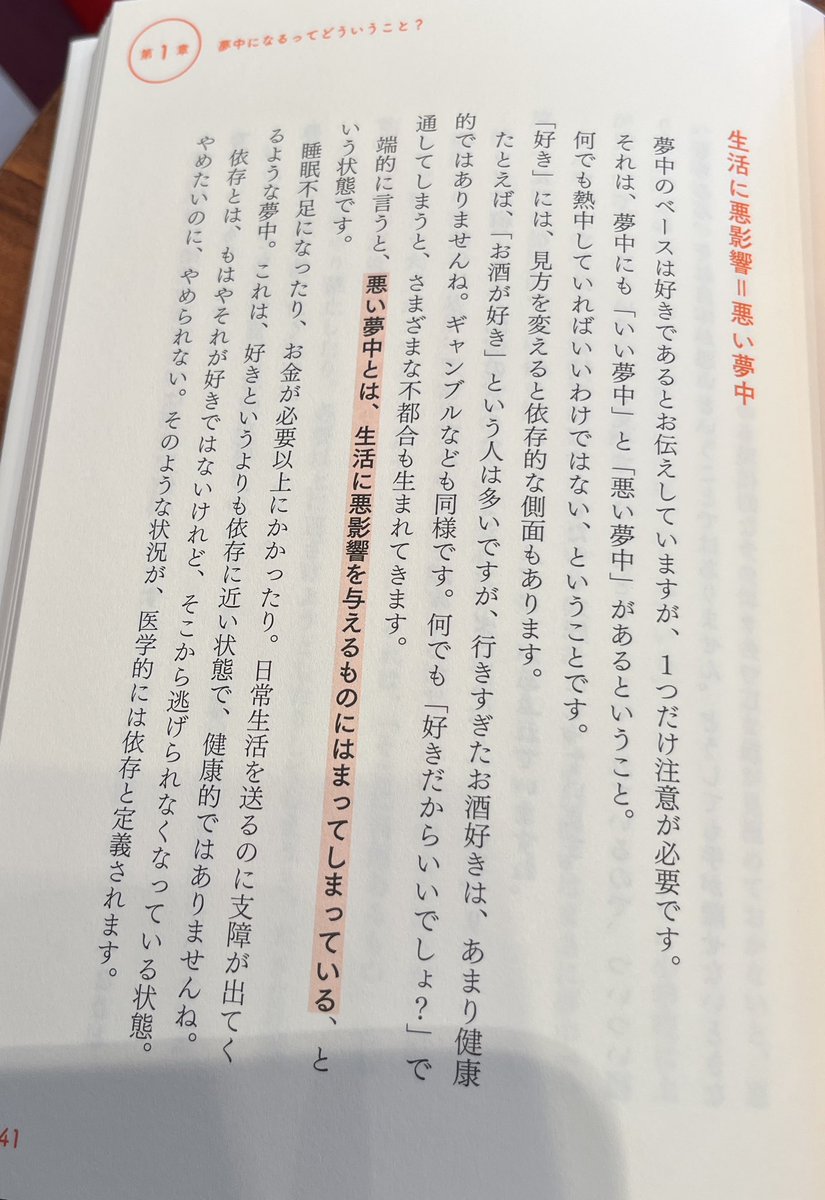 第1章 夢中になるってどういうこと？
生活に悪影響＝悪い夢中
夢中のベースは好きであるとお伝えしていますが、1つだけ注意が必要です。
それは、夢中にも「いい夢中」と「悪い夢中」があるということ。
何でも熱中していればいいわけではない、ということです。
「好き」には、見方を変えると依存的な側面もあります。
たとえば、「お酒が好き」という人は多いですが、行きすぎたお酒好きは、あまり健康
的ではありませんね。ギャンブルなども同様です。何でも「好きだからいいでしょ？」で
通してしまうと、さまざまな不都合も生まれてきます。
端的に言うと、悪い夢中とは、生活に悪影響を与えるものにはまってしまっている、と
いう状態です。
睡眠不足になったり、お金が必要以上にかかったり。日常生活を送るのに支障が出てく
るような夢中。これは、好きというよりも依存に近い状態で、健康的ではありませんね。
依存とは、もはやそれが好きではないけれど、そこから逃げられなくなっている状態。
やめたいのに、やめられない。そのような状況が、医学的には依存と定義されます。
41